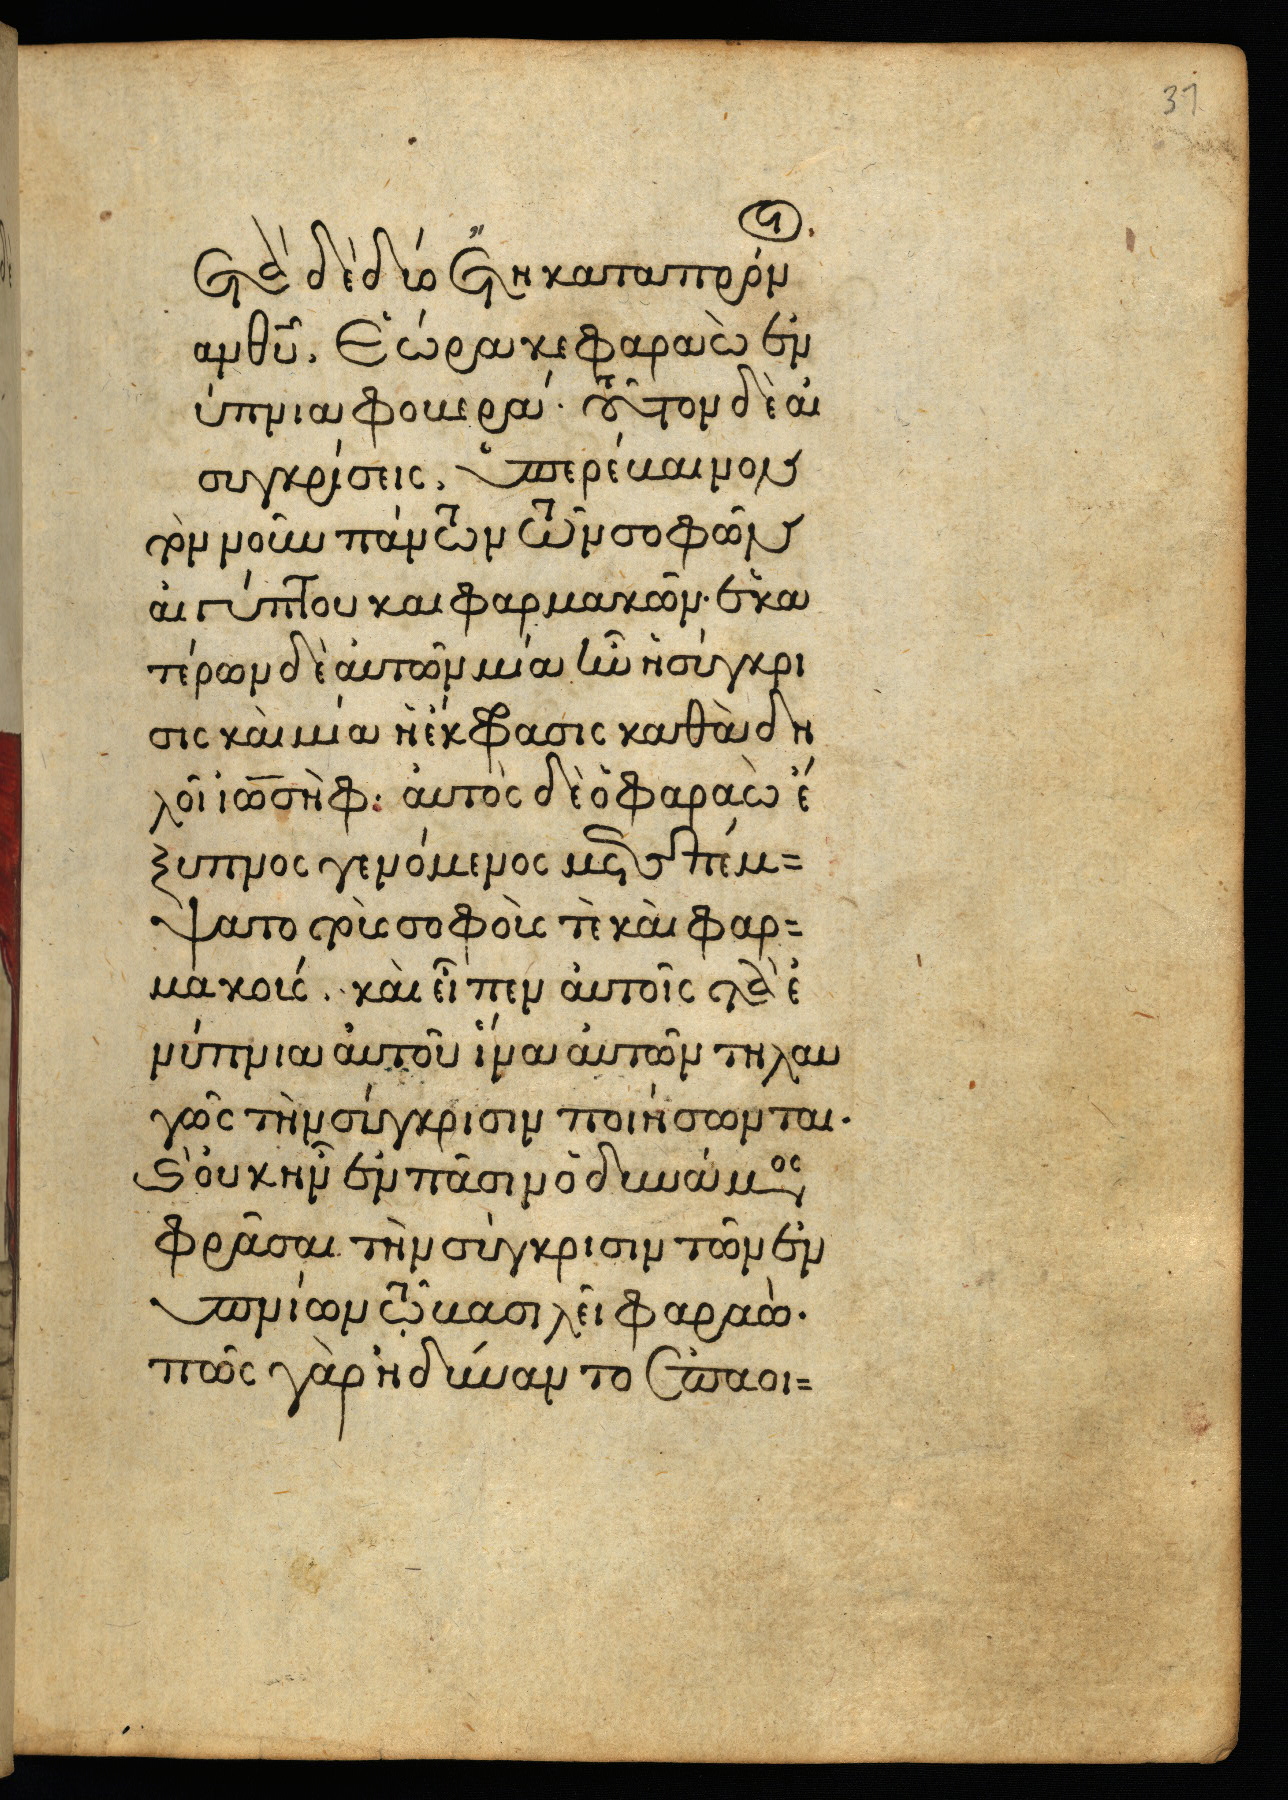 37
μετὰ δὲ δύο ἔτη κατὰ πρόν
ανθῦ. Ἑώρακε φαραὼ ἐν
ύπνια φοβερά. τούτων δὲ αἱ
συγκρίσεις, ὑπερέβαινον
τὸν νοῦν πάντων τῶν σοφῶν
αἰγύπτου και φαρμακῶν. ἑκα
τέρων δὲ αὐτῶν μία ἦν ἡ σύγκρι
σις καὶ μία ἡ ἔκβασις καθὰ δη
λοῖ ἰωσὴφ: αὐτὸς δὲ ὁ φαραὼ ἔ
ξυπνος γενόμενος πέμ=
ψατο τοὺς σοφοὺς τὲ καὶ φαρ=
μακούς. καὶ εἶπεν αὐτοῖς τὰ ἐ
νύπνια αὐτοῦ ἵνα αὐτῶν τηλαυ
γῶς τὴν σύγκρισιν ποιήσωνται.
καὶ οὐκ ἦν ἐν πᾶσιν ὁ δυνάμενος
φρᾶσαι τὴν σύγκρισιν τῶν ἐν
υπνίων τῷ βασιλεῖ φαραώ.
πῶς γὰρ ἠδύναντο ἐπαοι=